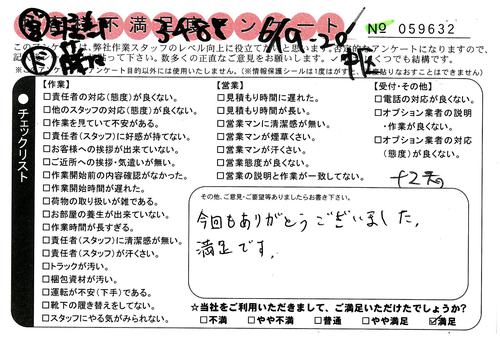 不満足度アンケート
№ 059632
このアンケートは、弊社作業スタッフのレベル向上に役立てたいと思います。否定的なアンケートになりますので、
数多くの正直なご意見をお願いします。✓
くつでも結構です。
アンケート目的以外には一切使用いたしません。(※情報保護シールは1度はがすと、再度貼りなおすことはできません)
チェックリスト
【作業】
□責任者の対応(態度)が良くない。
□他のスタッフの対応(態度)が良くない。
□作業を見ていて不安がある。
□責任者(スタッフ)に好感が持てない。
□お客様への挨拶が出来ていない。
□ご近所への挨拶・気遣いが無い。
□作業開始前の内容確認がなかった。
□作業開始時間が遅れた。
□荷物の取り扱いが雑である。
□お部屋の養生が出来ていない。
□作業時間が長すぎる。
□責任者(スタッフ)に清潔感が無い。
□責任者(スタッフ)が汗くさい。
□トラックが汚い。
□梱包資材が汚い。
□運転が不安(下手)である。
□靴下の履き替えをしてない。
□スタッフにやる気がみられない。
【営業】
□見積もり時間に遅れた。
□見積もり時間が長い。
□営業マンに清潔感が無い。
□営業マンが煙草くさい。
□営業マンが汗くさい。
□営業態度が良くない。
□営業の説明と作業が一致してない。
【受付・その他】
□電話の対応が良くない。
□オプション業者の説明
・作業が良くない。
□オプション業者の対応
(態度)が良くない。
その他、ご意見・ご要望等ありましたらお書き下さい。
今回もありがとうございました。
満足です。
☆当社をご利用いただきまして、ご満足いただけたでしょうか?
□不満 □やや不満 □普通 □やや満足 ☑満足